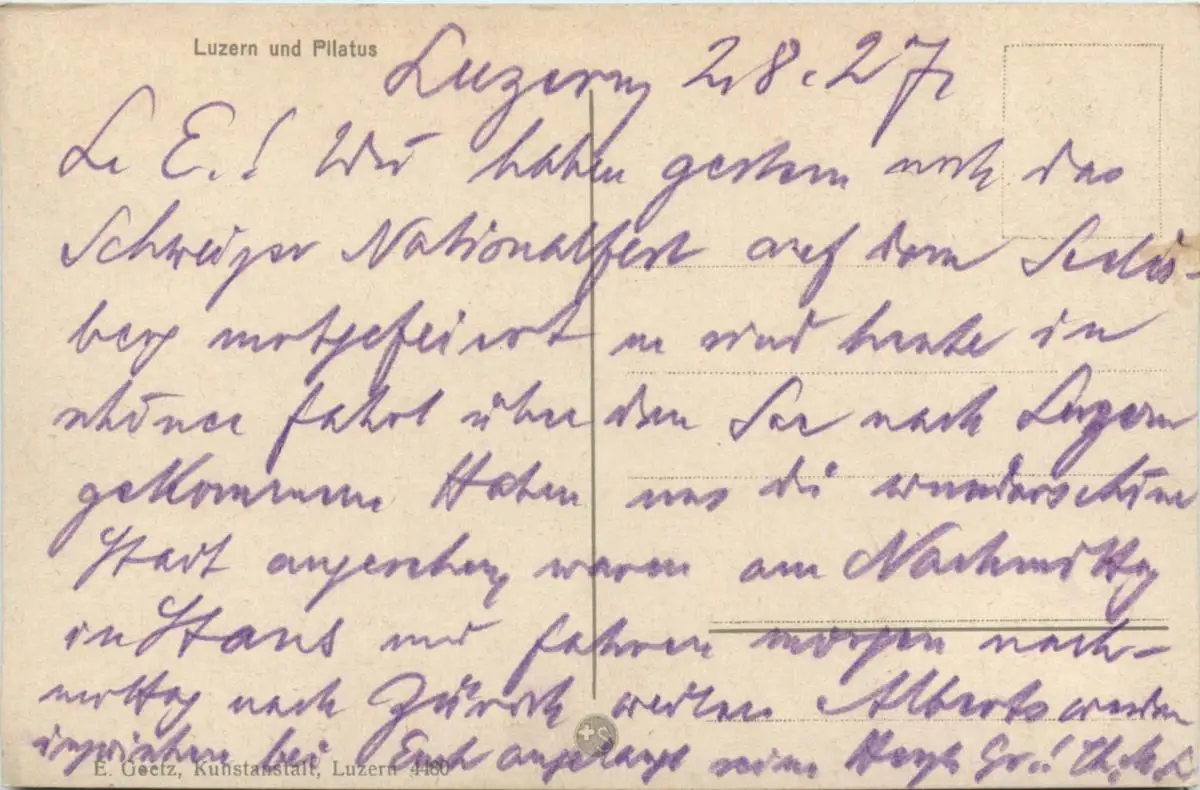 Luzern und Pilatus
Luzern, 2.8.27,
L. E.! Wir haben gestern noch das
Schweizer Nationalfest auf dem Seelis-
berg mitgefeiert u sind heute in
schöner Fahrt über den See nach Luzern
gekommen Haben uns die wunderschöne
Stadt angesehen, waren am Nachmittag
in Stans und fahren morgen nach-
mittag nach Zürich weiter Alberts werden
inzwischen bei Euch angelangt sein Herzl. Gr.!
E. Goetz, Kunstanstalt, Luzern 4480